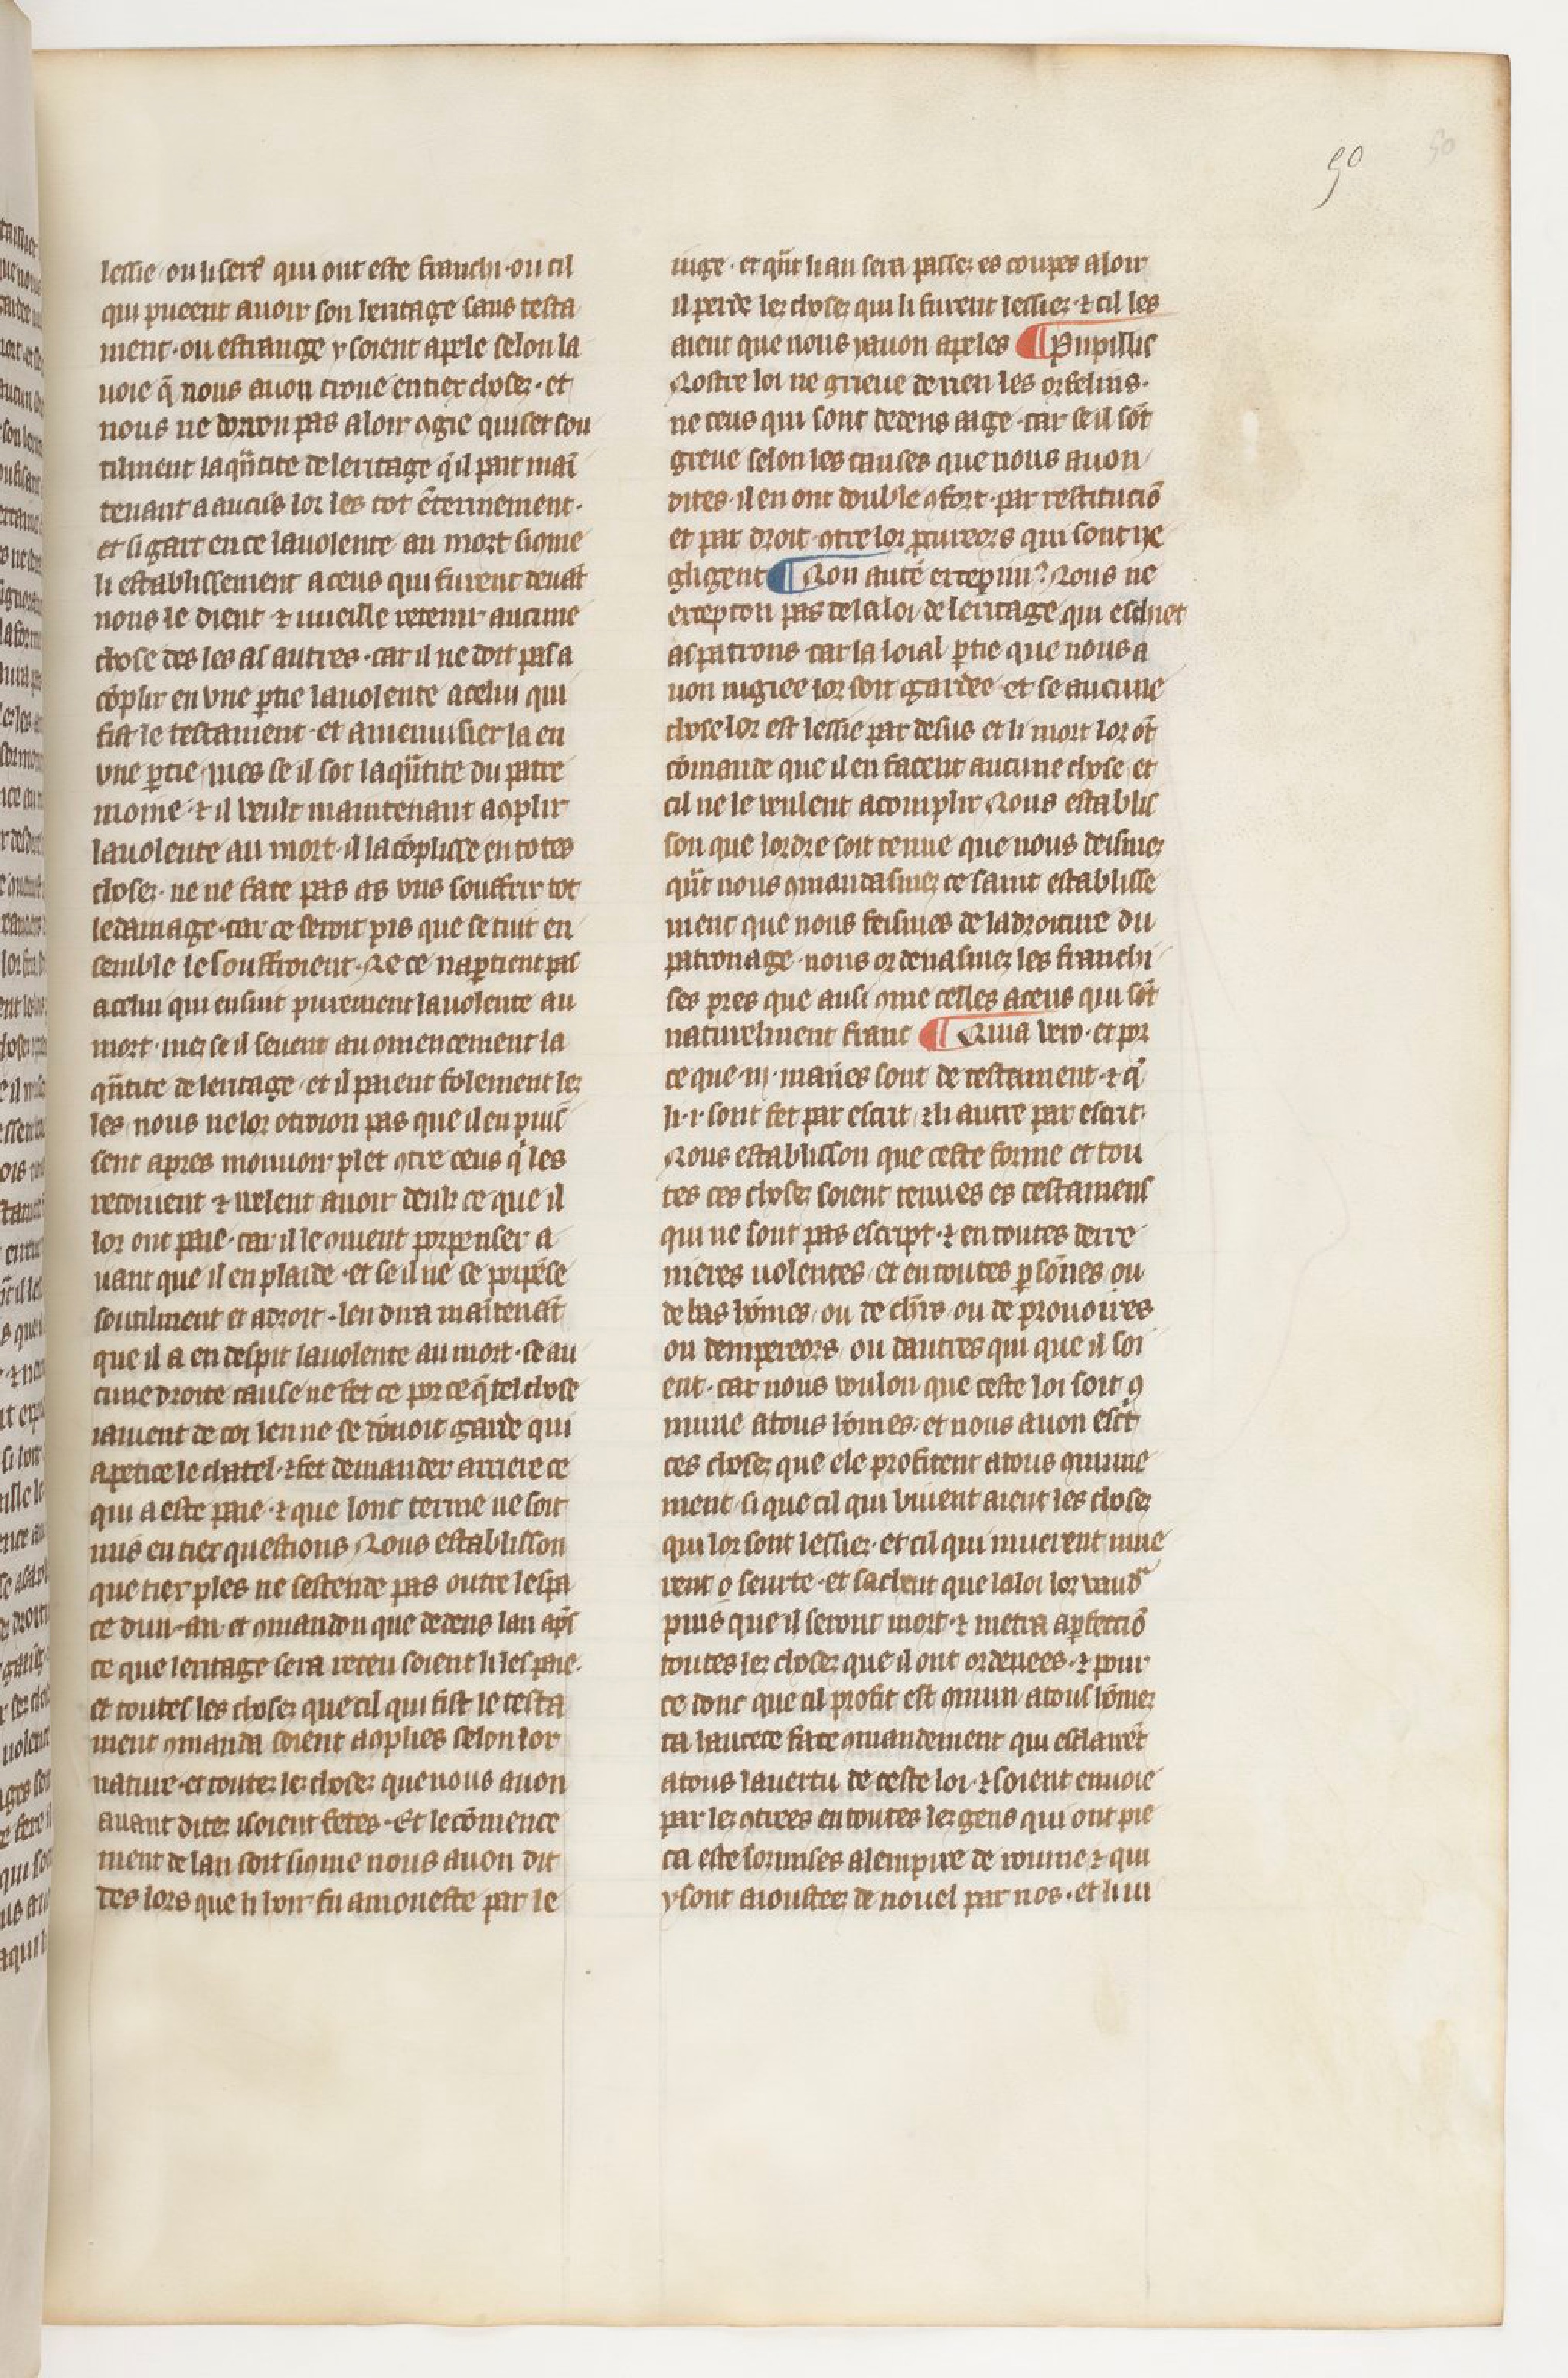 50
50
lessie ou li serf qui ont este franchi · ou cil
qui pueent auoir son leritage sans testa
ment · ou estrange y soient apele selon la
uoie q̃ nous auon troue en tiex choses · et
nous ne donron pas a loir ꝯgie qui set sou
tilment la qñtite de leritage q̃ il pait mai
tenant a aucūs lor les tot ẽterinement ·
et si gart en ce la uolente au mort si ꝯme
li establissement a ceus qui furent deuāt
nous le dient ⁊ uueille retenir aucune
chose des les as autres · car il ne doit pas a
cōplir en vne ꝑtie la uolente a celui qui
fist le testament · et amenuisier la en
vne ꝑtie mes se il sot la qñtite du patre
moine · ⁊ il veult maintenant aꝯplir
la uolente au mort · il la cōplisse en totes
choses · ne ne face pas as vns souffrir tot
le damage · car ce seroit pis que se tuit en
semble le souffroient · Ne ce naꝑtient pas
a celui qui ensiut purement la uolente au
mort · mes se il seuent au ꝯmencement la
qñtite de leritage · et il paient folement les
les nous ne lor otroion pas que il en puis
sent apres mouuoir plet ꝯtre ceus q̃ les
recoiuent ⁊ uelent auoir deulz ce que il
lor ont paie · car il le ꝯuient porpenser a
uant que il en plaide · et se il ne se porpēse
soutilment et a droit · len dira maītenāt
que il a en despit la uolente au mort · se au
cune droite cause ne fet ce por ce q̃ tel chose
lauient de coi len ne se donoit garde qui
apetice le chatel · ⁊ fet demander arriere ce
qui a este paie · ⁊ que lonc terme ne soit
mis en tiex questions Nous establisson
que tiex ples ne sestende pas outre lespa
ce dun · an · et ꝯmandon que dedens lan apẽs
ce que leritage sera receu soient li les paie ·
et toutes les choses que cil qui fist le testa
ment ꝯmanda soient aꝯplies selon lor
nature · et toutes les choses que nous auon
auant dites isoient fetes · Et le cōmence
ment de lan soit si ꝯme nous auon dit
des lors que li hoir fu amoneste par le
iuge · et qñt li an sera passez es coupes a loir
il perde les choses qui li furent lessies · ⁊ cil les
aient que nous yauon apeles ¶ Pupillis
Nostre loi ne grieue de rien les orfelins ·
ne ceus qui sont dedens aage · car se il sōt
greue selon les causes que nous auon
dites · il en ont double ꝯfort · par restituciō
et par droit · ꝯtre lor ꝓcureors qui sont ne
gligent ¶ Non autē excepim᷒ Nous ne
excepton pas de la loi de leritage qui eschiet
as patrons car la loial ꝑtie que nous a
uon iugiee lor soit gardee et se aucune
chose lor est lessie par desus et li mort lor ōt
cōmande que il en facent aucune chose et
cil ne le veulent acomplir Nous establis
son que lordre soit tenue que nous deismes
qñt nous ꝯmandasmes ce saint establisse
ment que nous feismes de la droiture du
patronage · nous ordenasmes les franchi
ses pres que ausi ꝯme celles a ceus qui sōt
naturelment franc ¶ Quia vero · et por
ce que · iij · manies sont de testament · ⁊ q̃
li · i · sont fet par escrit ⁊ li autre par escrit
Nous establisson que ceste forme et tou
tes ces choses soient tenues es testamens
qui ne sont pas escript · ⁊ en toutes derre
nieres uolentes · et en toutes ꝑsones ou
de bas hōmes · ou de chlīrs ou de prouoires
ou dempereors · ou dautres qui que il soi
ent · car nous voulon que ceste loi soit ꝯ
mune a tous hōmes · et nous auon escrit
ces choses que ele profitent a tous ꝯmune
ment · si que cil qui viuent aient les choses
qui lor sont lessies · et cil qui muerent mue
rent o seurte · et sachent que la loi lor vaudra
puis que il seront mort · ⁊ metra a ꝑfectiō
toutes les choses que il ont ordenees · ⁊ pour
ce donc que cil profit est ꝯmun a tous hōmes
ta hautece face ꝯmandement qui esclairēt
a tous la uertu de ceste loi · ⁊ soient enuoie
par les ꝯtrees en toutes les gens qui ont pie
ca este sormises a lempire de roume ⁊ qui
y sont aioustees de nouel par nos · et li iu